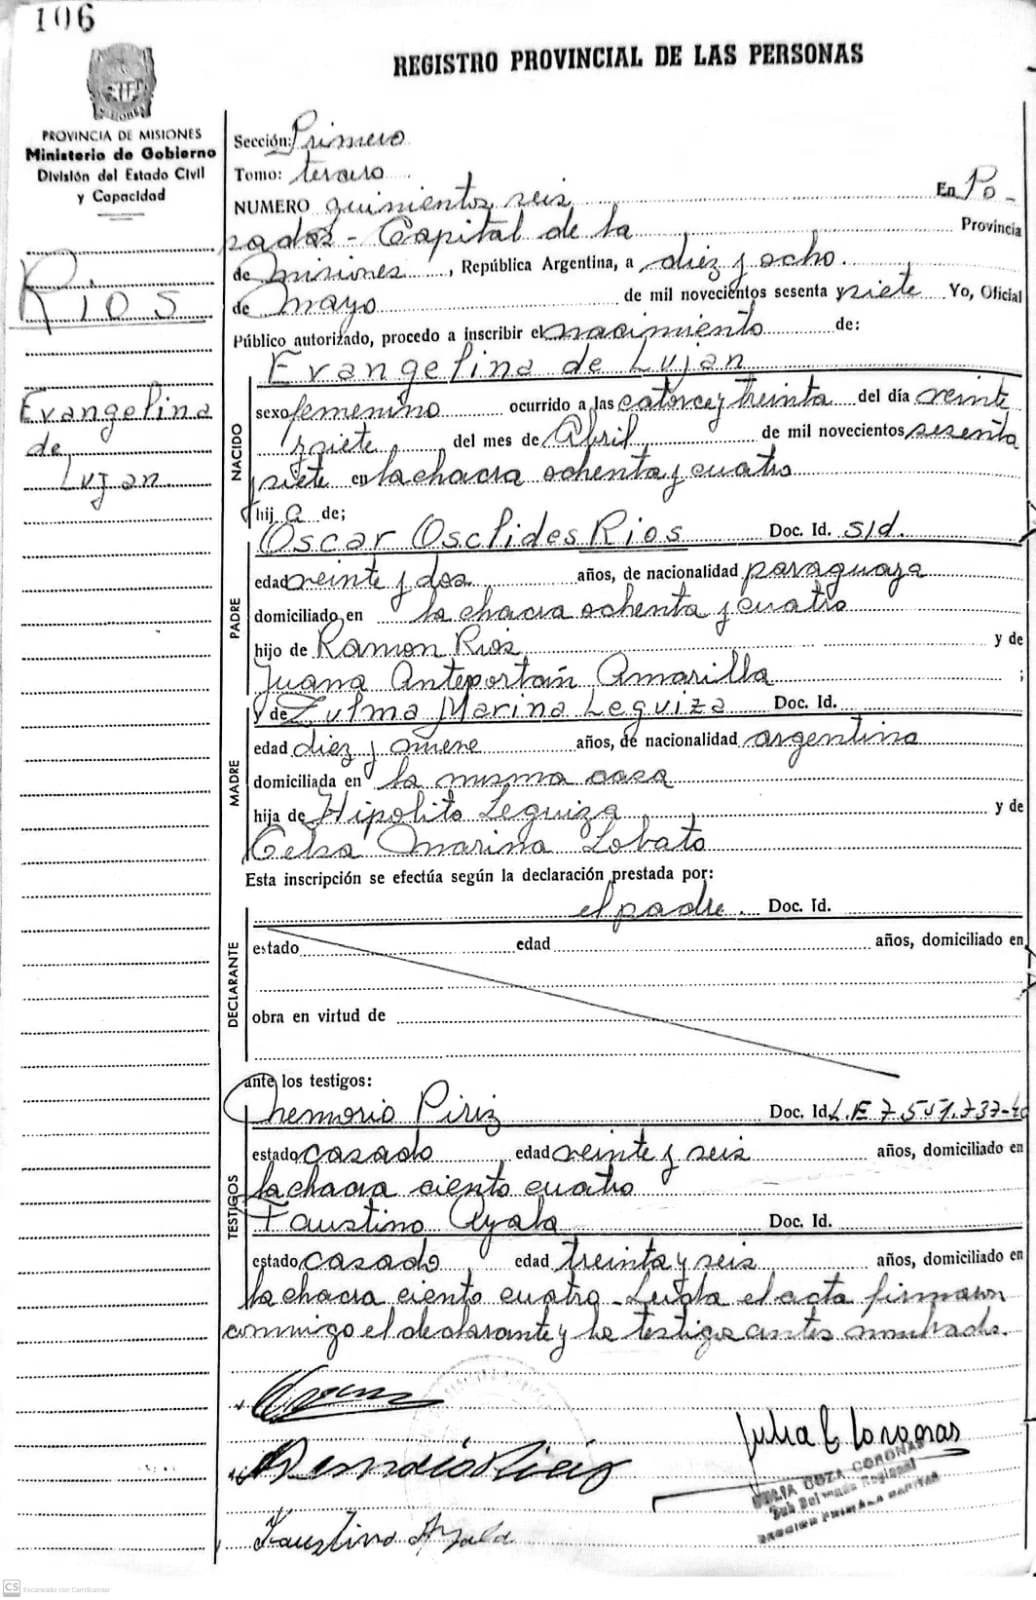 106
REGISTRO PROVINCIAL DE LAS PERSONAS
PROVINCIA DE MISIONES
Ministerio de Gobierno
División del Estado Civil
y Capacidad
Rios
Evangelina
de
Lujan
Sección: Primera
Tomo: tercero
NUMERO quinientos seis En Po-
sadas - Capital de la Provincia
de Misiones, República Argentina, a diez y ocho
de Mayo de mil novecientos sesenta y siete Yo, Oficial
Público autorizado, procedo a inscribir el nacimiento de:
Evangelina de Lujan
NACIDO
sexo femenino ocurrido a las catorce y treinta del día veinte
y siete del mes de Abril de mil novecientos sesenta
y siete en la chacra ochenta y cuatro
hija de;
PADRE
Oscar Osclides Rios Doc. Id. s/d.
edad veinte y dos años, de nacionalidad paraguaya
domiciliado en la chacra ochenta y cuatro
hijo de Ramon Rios y de
Juana Amarilla ;
MADRE
y de Zulma Marina Leguiza Doc. Id.
edad diez y nueve años, de nacionalidad argentina
domiciliada en la misma casa
hija de Hipolito Leguiza y de
Celsa Marina Lobato
Esta inscripción se efectúa según la declaración prestada por:
DECLARANTE
el padre. Doc. Id.
estado edad años, domiciliado en
obra en virtud de
ante los testigos:
TESTIGOS
Piriz Doc. Id. L.E 7.551.737-
estado casado edad veinte y seis años, domiciliado en
la chacra ciento cuatro
Faustino Ayala Doc. Id.
estado casado edad treinta y seis años, domiciliado en
la chacra ciento cuatro - Leida el acta firmaron
conmigo el declarante y los testigos antes nombrados.
Julia C Coronas
Faustino Ayala
JULIA COZA CORONAS
Sub Delegado Regional
CS Escaneado con CamScanner